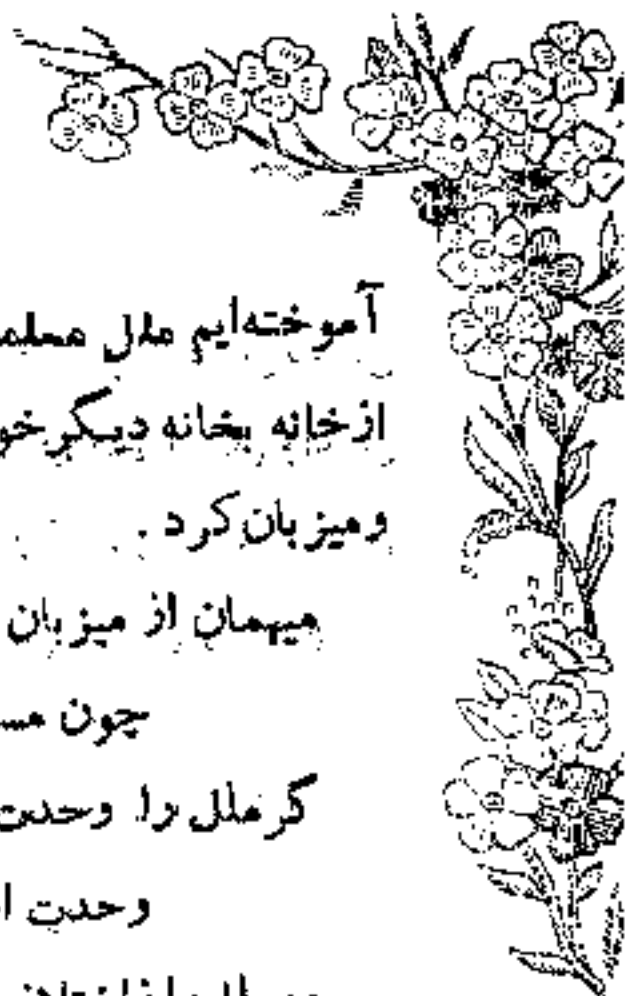 آموخته‌ایم ملل
ازخانه بخانه دیگر
ومیزبان کرد .
میهمان از میزبان
چون
گر ملل را وحدت
وحدت